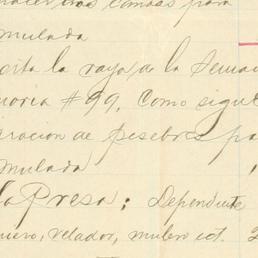 hacer tras canoas para
mulada
cita la raya de la Semana
moria #99, Como sigue
eracion de pesebres pa
mulada
la Presa; Dependiente
uero, velador, mulero ect. 2